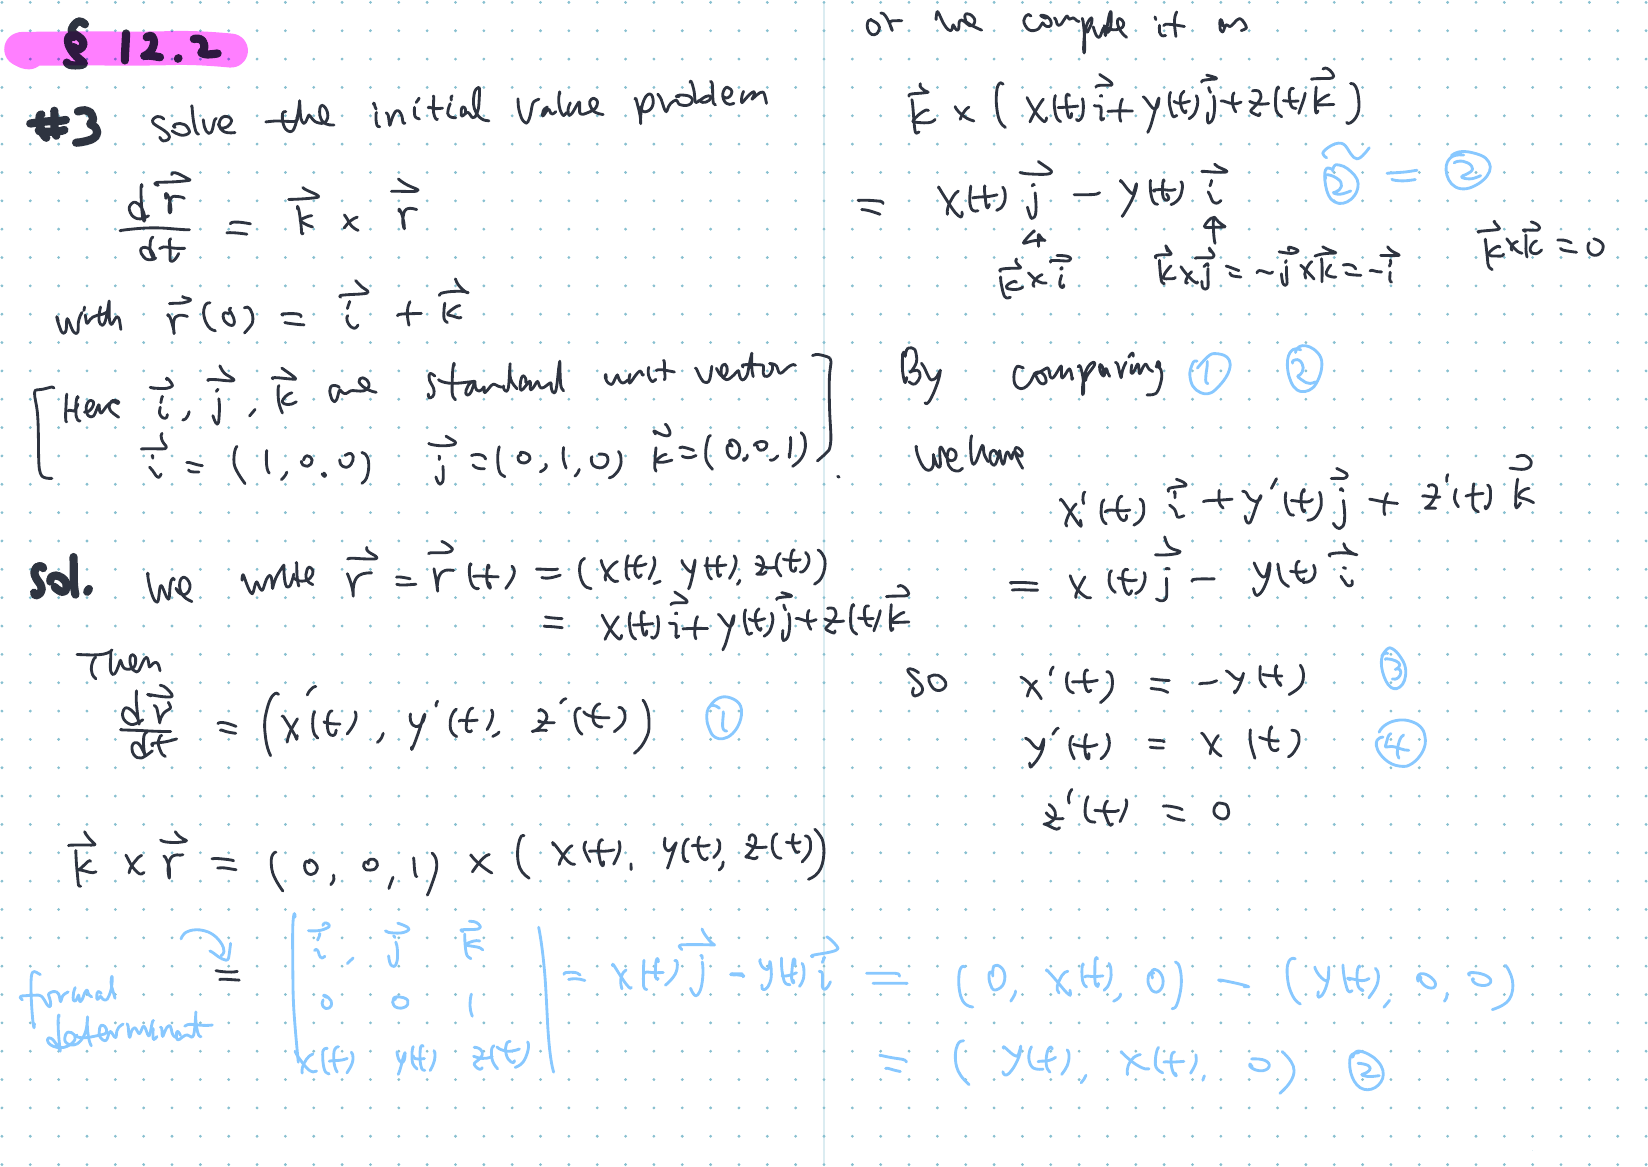 § 12.2
#3 solve the initial value problem
d\vec{r}/dt = \vec{k} × \vec{r}
with \vec{r}(0) = \vec{i} + \vec{k}
[Here \vec{i}, \vec{j}, \vec{k} are standard unit vector
\vec{i} = (1,0.0) \vec{j} = (0,1,0) \vec{k} = (0,0,1)].
Sol. We write \vec{r} = \vec{r}(t) = (x(t), y(t), z(t))
= x(t)\vec{i} + y(t)\vec{j} + z(t)\vec{k}
Then
d\vec{r}/dt = (x'(t), y'(t), z'(t)) ①
\vec{k} × \vec{r} = (0, 0, 1) × (x(t), y(t), z(t))
formal determinant
= | \vec{i}, \vec{j} \vec{k}
0 0 1
x(t) y(t) z(t) | = x(t)\vec{j} - y(t)\vec{i} = (0, x(t), 0) - (y(t), 0, 0)
= (y(t), x(t), 0) ②
or we compute it as
\vec{k} × (x(t)\vec{i} + y(t)\vec{j} + z(t)\vec{k})
= x(t)\vec{j} - y(t)\vec{i} \tilde{②} = ②
\vec{k}×\vec{i} \vec{k}×\vec{j} = -\vec{j}×\vec{k} = -\vec{i} \vec{k}×\vec{k} = 0
By comparing ① ②
we have
x'(t)\vec{i} + y'(t)\vec{j} + z'(t)\vec{k}
= x(t)\vec{j} - y(t)\vec{i}
so x'(t) = -y(t) ③
y'(t) = x(t) ④
z'(t) = 0